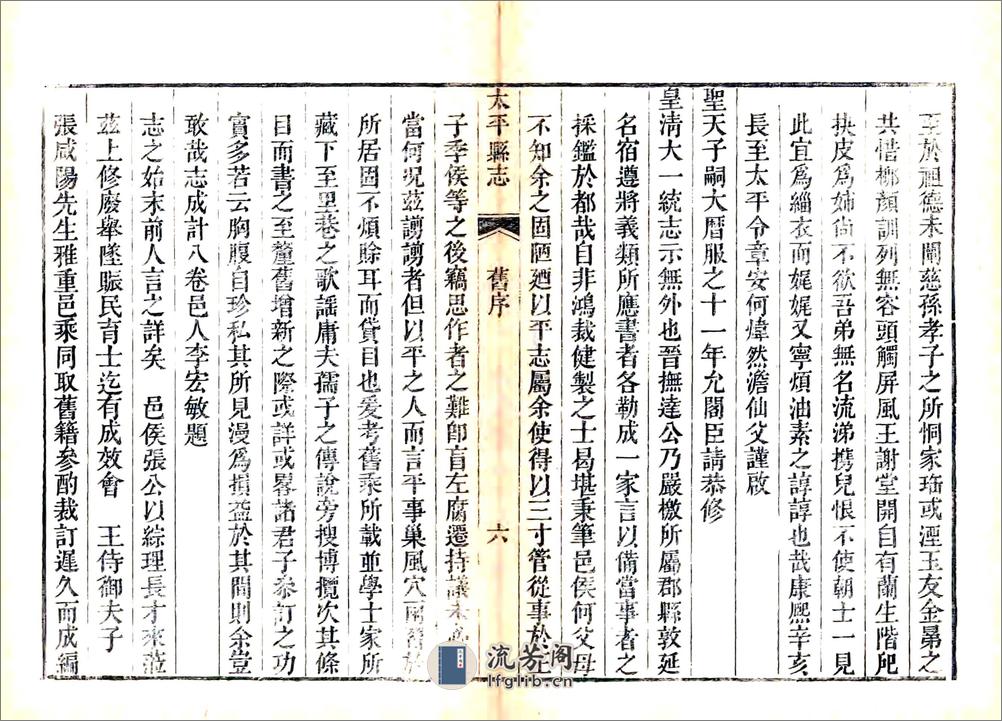 至於祖德未闡慈孫孝子之所恫家珤或湮玉友金昴之
共惜椰顔訓列無容頭觸屏風王謝堂開自有蘭生階戺
抉皮爲姊尚不欲吾弟無名流涕携兒恨不使朝士一見
此宜爲緇衣而娓娓又寧煩油素之諄諄也哉康熙辛亥
長至太平令章安何煒然澹仙父謹啟
聖天子嗣大曆服之十一年允閣臣請恭修
皇清大一統志示無外也晉撫達公乃嚴檄所屬郡縣敦延
名宿遵將義類所應書者各勒成一家言以備當事者之
採鑑於都哉自非鴻裁健製之士曷堪秉筆邑侯何父母
不知余之固陋廼以平志屬余使得以三寸管從事於
太平縣志 舊序 六
子季侯等之後竊思作者之難卽盲左腐遷持議未
當何況茲謭謭者但以平之人而言平事巢風穴雨得於
所居固不煩賒耳而貸目也爰考舊乘所載並學士家所
藏下至里巷之歌謠庸夫孺子之傳說旁搜博攬次其條
目而書之至釐舊增新之際或詳或畧諸君子叅訂之功
實多若云胸腹自珍私其所見漫爲損益於其間則余豈
敢哉志成計八卷邑人李宏敏題
志之始末前人言之詳矣 邑侯張公以綜理長才來蒞
茲上修廢舉墜賑民育士迄有成效會 王侍御夫子
張咸陽先生雅重邑乘同取舊籍參酌裁訂遲久而成編
流芳阁
lfglib.cn